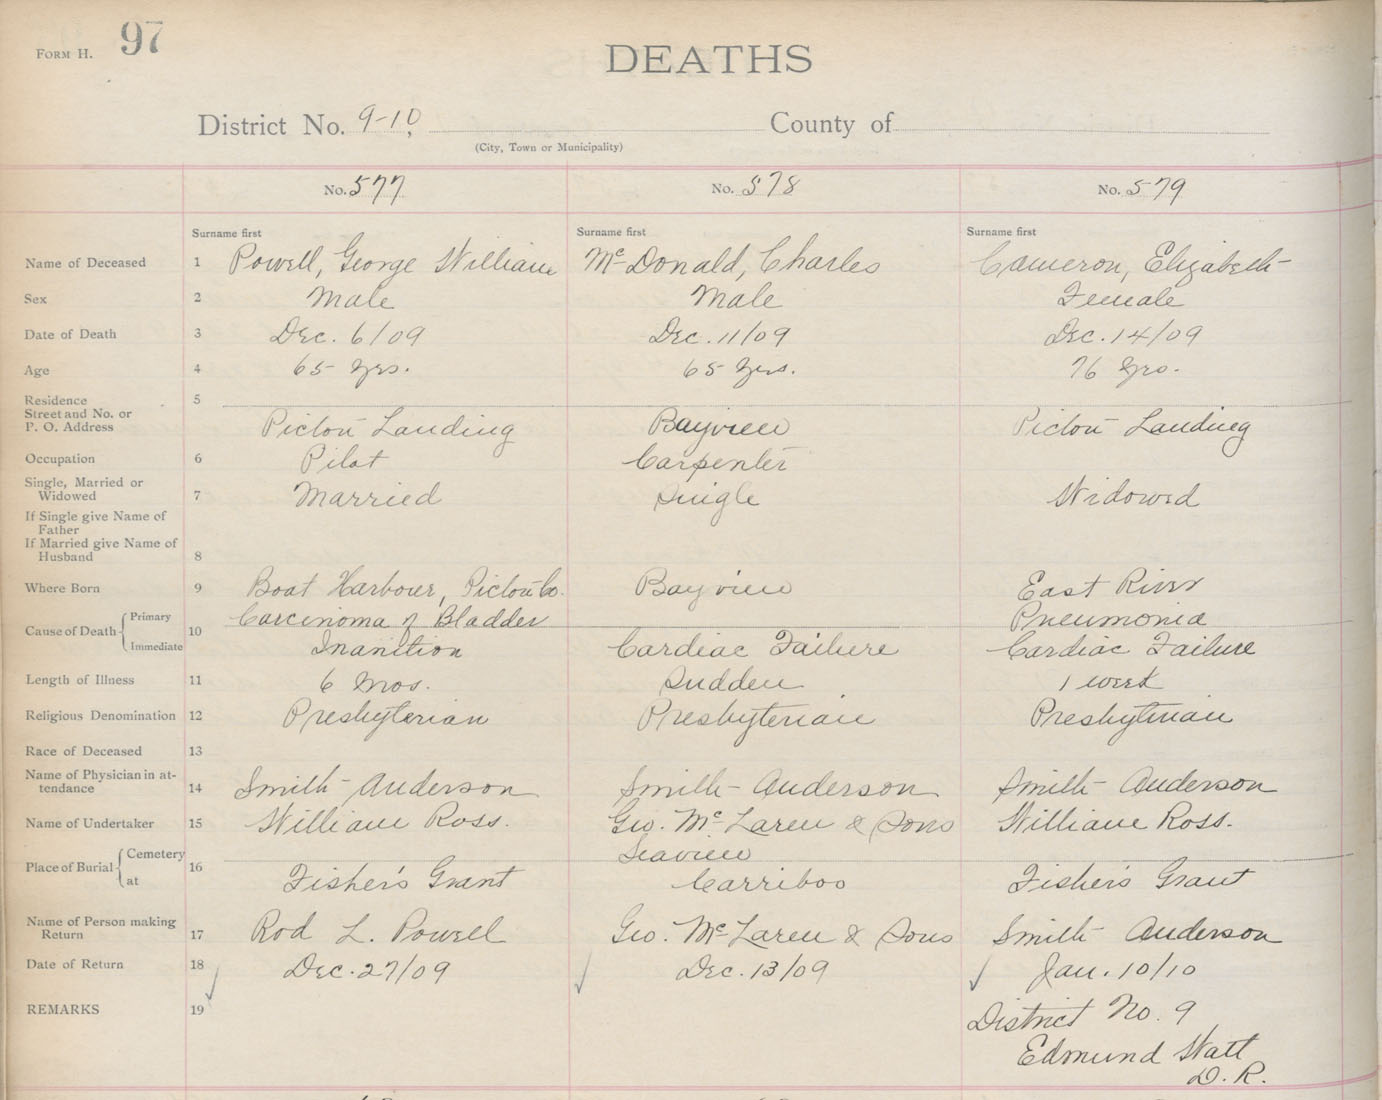 FORM H. 97
DEATHS
District No. 9-10, County of
(City, Town or Municipality)
No. 577 No. 578 No. 579
Surname first Surname first Surname first
Name of Deceased 1 Powell, George William McDonald, Charles Cameron, Elizabeth
Sex 2 Male Male Female
Date of Death 3 Dec. 6/09 Dec. 11/09 Dec. 14/09
Age 4 65 yrs. 65 yrs. 76 yrs.
Residence 5
Street and No. or
P. O. Address Pictou Landing Bayview Pictou Landing
Occupation 6 Pilot Carpenter
Single, Married or
Widowed 7 Married Single Widowed
If Single give Name of
Father
If Married give Name of
Husband 8
Where Born 9 Boat Harbour, Pictou Co. Bayview East River
Cause of Death 10 Primary Carcinoma of Bladder Pneumonia
Immediate Inanition Cardiac Failure Cardiac Failure
Length of Illness 11 6 Mos. Sudden 1 week
Religious Denomination 12 Presbyterian Presbyterian Presbyterian
Race of Deceased 13
Name of Physician in at-
tendance 14 Smith Anderson Smith Anderson Smith Anderson
Name of Undertaker 15 William Ross. Geo. McLaren & Sons William Ross.
Place of Burial 16 Cemetery Seaview
at Fisher's Grant Carriboo Fisher's Grant
Name of Person making
Return 17 Rod L. Powell Geo. McLaren & Sons Smith Anderson
Date of Return 18 Dec. 27/09 Dec. 13/09 Jan. 10/10
REMARKS 19 District No. 9
Edmund Watt
D. R.